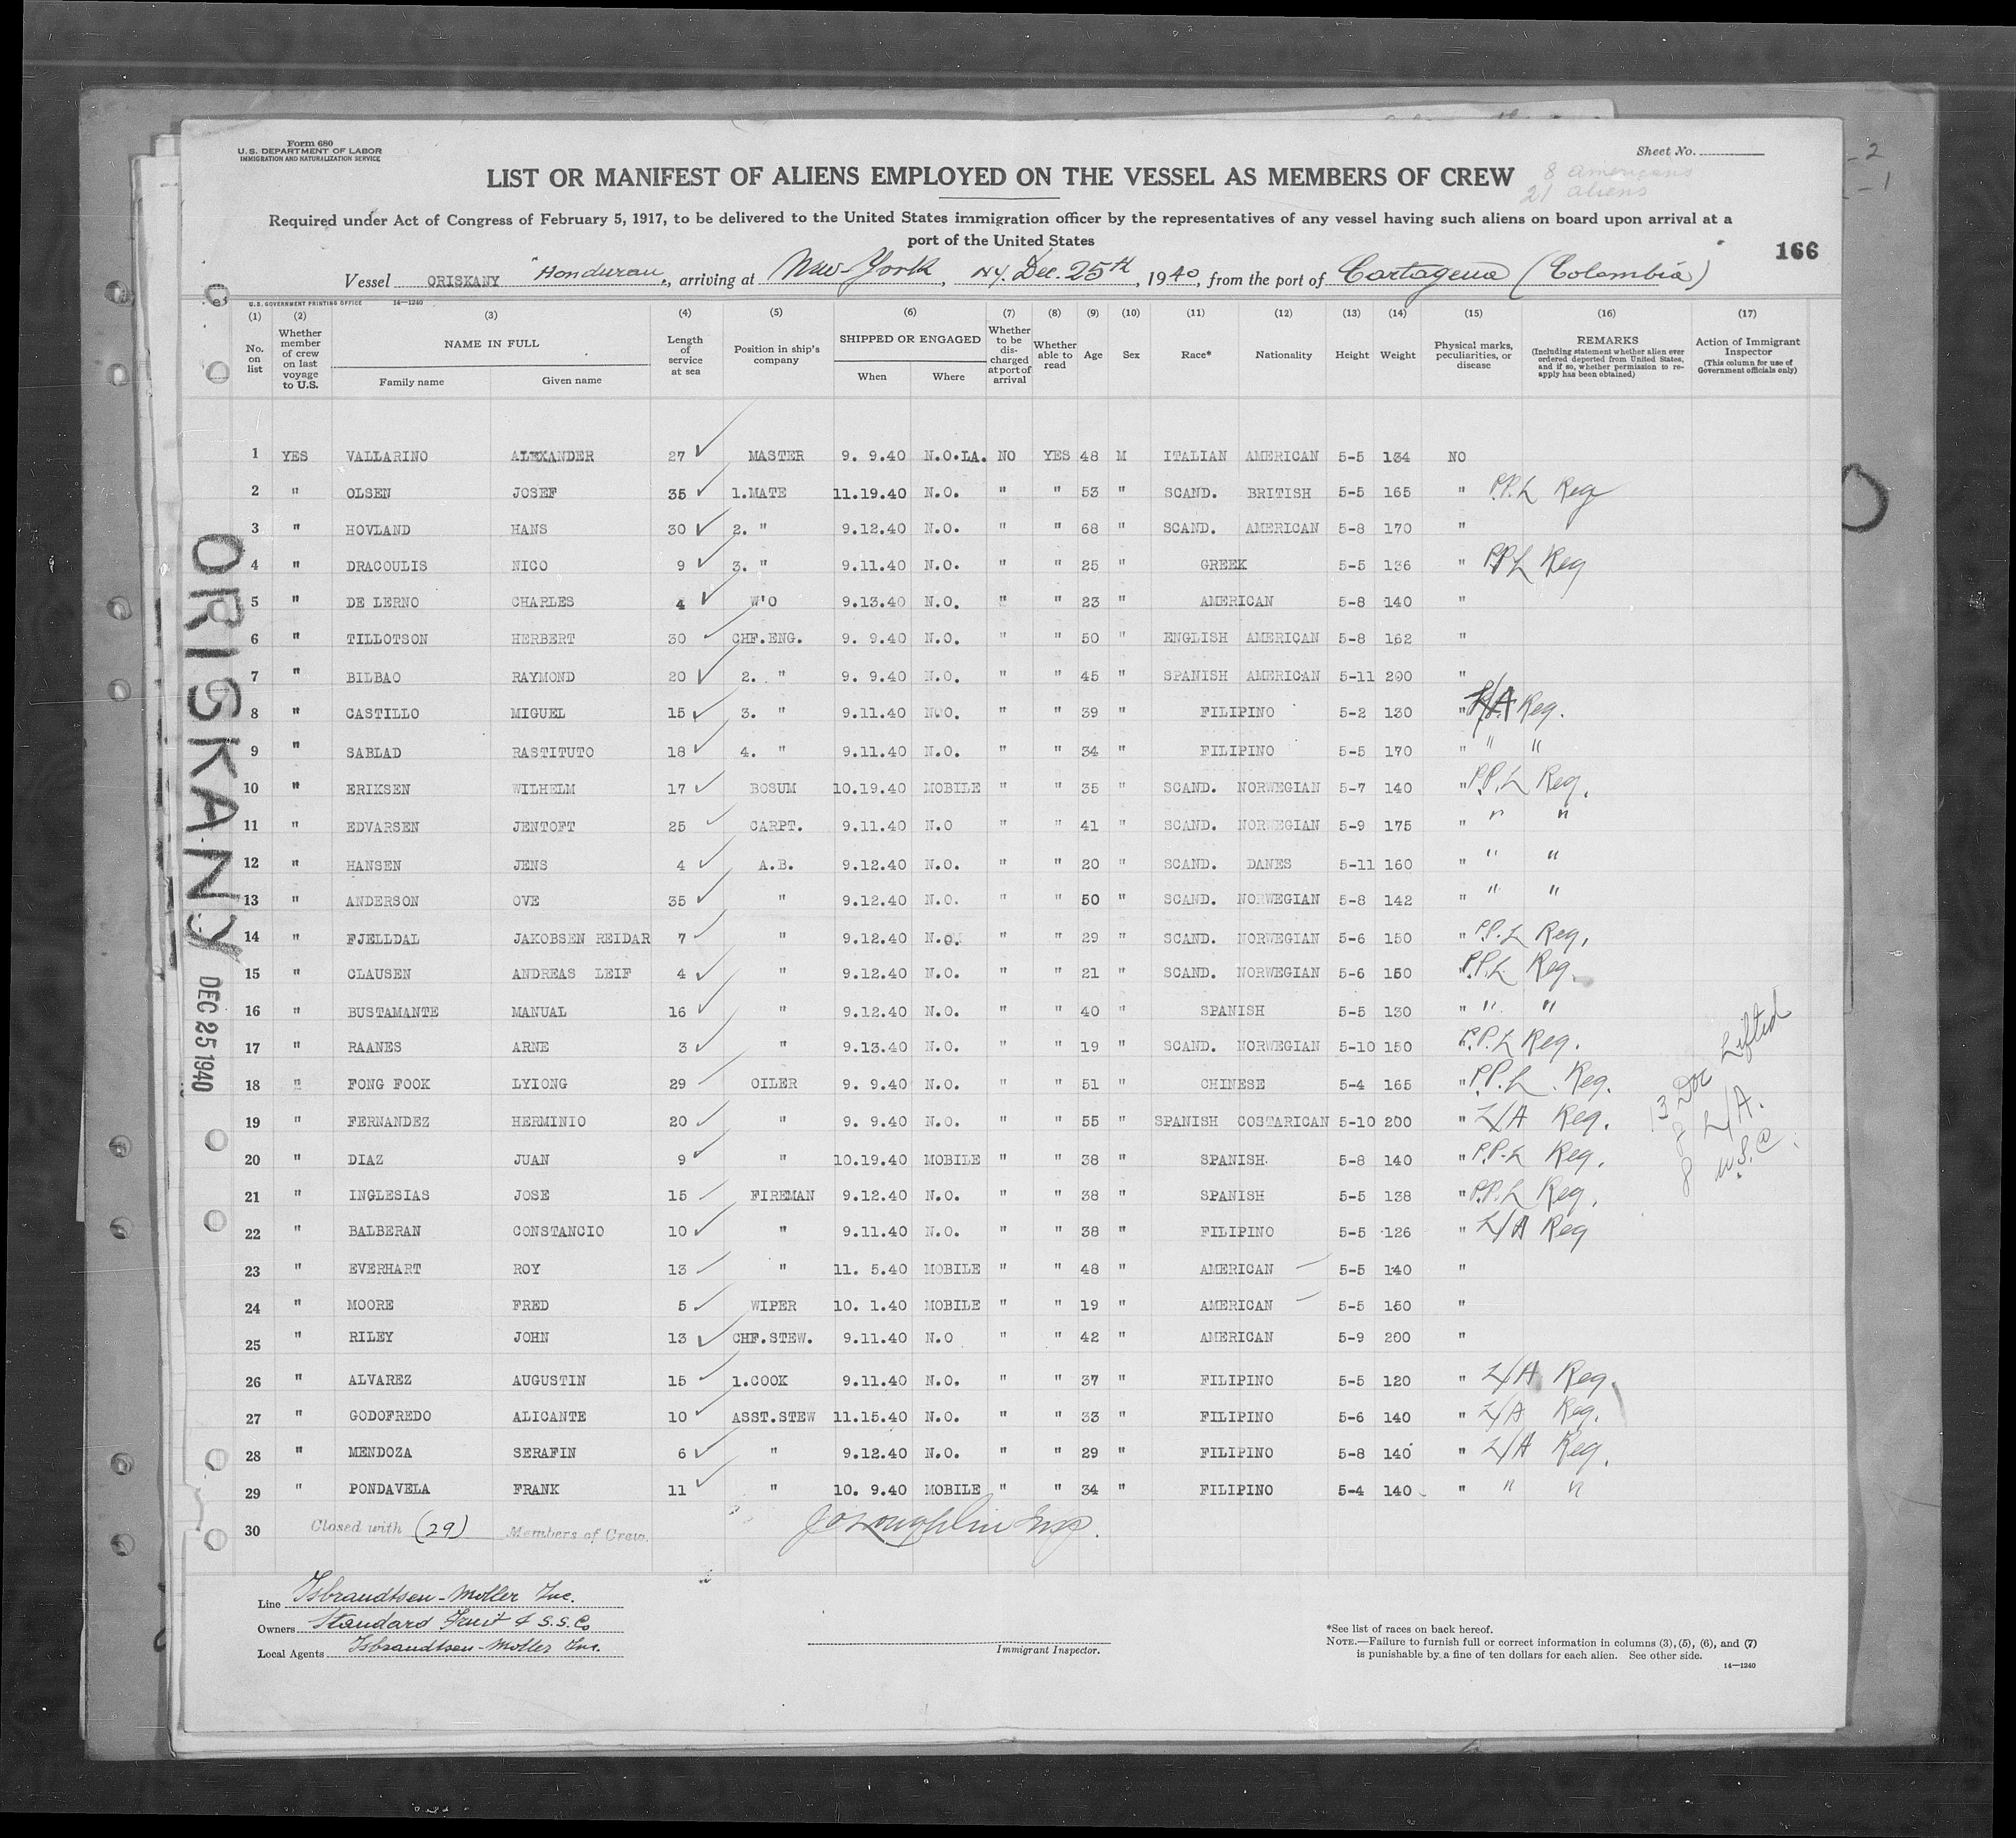 Form 680
U.S. DEPARTMENT OF LABOR
IMMIGRATION AND NATURALIZATION SERVICE
Sheet No.
LIST OR MANIFEST OF ALIENS EMPLOYED ON THE VESSEL AS MEMBERS OF CREW
8 americans
21 aliens
Required under Act of Congress of February 5, 1917, to be delivered to the United States immigration officer by the representatives of any vessel having such aliens on board upon arrival at a
port of the United States
166
Vessel ORISKANY "Honduran, arriving at New York, N.Y. Dec. 25th, 1940, from the port of Cartagena (Colombia)
U.S. GOVERNMENT PRINTING OFFICE 14—1240
(1) (2) (3) (4) (5) (6) (7) (8) (9) (10) (11) (12) (13) (14) (15) (16) (17)
No. on list
Whether member of crew on last voyage to U.S.
NAME IN FULL
Family name Given name
Length of service at sea
Position in ship's company
SHIPPED OR ENGAGED
When Where
Whether to be discharged at port of arrival
Whether able to read
Age
Sex
Race*
Nationality
Height
Weight
Physical marks, peculiarities, or disease
REMARKS
(Including statement whether alien ever ordered deported from United States, and if so, whether permission to reapply has been obtained)
Action of Immigrant Inspector
(This column for use of Government officials only)
1 YES VALLARINO ALEXANDER 27 MASTER 9. 9.40 N.O.LA. NO YES 48 M ITALIAN AMERICAN 5-5 134 NO
2 " OLSEN JOSEF 35 1.MATE 11.19.40 N.O. " " 53 " SCAND. BRITISH 5-5 165 " P.P.L Reg
3 " HOVLAND HANS 30 2. " 9.12.40 N.O. " " 68 " SCAND. AMERICAN 5-8 170 "
4 " DRACOULIS NICO 9 3. " 9.11.40 N.O. " " 25 " GREEK 5-5 136 " P.P.L Reg
5 " DE LERNO CHARLES 4 W'O 9.13.40 N.O. " " 23 " AMERICAN 5-8 140 "
6 " TILLOTSON HERBERT 30 CHF.ENG. 9. 9.40 N.O. " " 50 " ENGLISH AMERICAN 5-8 162 "
7 " BILBAO RAYMOND 20 2. " 9. 9.40 N.O. " " 45 " SPANISH AMERICAN 5-11 200 "
8 " CASTILLO MIGUEL 15 3. " 9.11.40 N.O. " " 39 " FILIPINO 5-2 130 " L/A Reg.
9 " SABLAD RASTITUTO 18 4. " 9.11.40 N.O. " " 34 " FILIPINO 5-5 170 " " "
10 " ERIKSEN WILHELM 17 BOSUM 10.19.40 MOBILE " " 35 " SCAND. NORWEGIAN 5-7 140 " P.P.L Reg.
11 " EDVARSEN JENTOFT 25 CARPT. 9.11.40 N.O " " 41 " SCAND. NORWEGIAN 5-9 175 " " "
12 " HANSEN JENS 4 A.B. 9.12.40 N.O. " " 20 " SCAND. DANES 5-11 160 " " "
13 " ANDERSON OVE 35 " 9.12.40 N.O. " " 50 " SCAND. NORWEGIAN 5-8 142 " " "
14 " FJELLDAL JAKOBSEN REIDAR 7 " 9.12.40 N.O. " " 29 " SCAND. NORWEGIAN 5-6 150 " P.P.L Reg.
15 " CLAUSEN ANDREAS LEIF 4 " 9.12.40 N.O. " " 21 " SCAND. NORWEGIAN 5-6 150 P.P.L. Reg.
16 " BUSTAMANTE MANUAL 16 " 9.12.40 N.O. " " 40 " SPANISH 5-5 130 " " "
17 " RAANES ARNE 3 " 9.13.40 N.O. " " 19 " SCAND. NORWEGIAN 5-10 150 P.P.L Reg.
18 " FONG FOOK LYIONG 29 OILER 9. 9.40 N.O. " " 51 " CHINESE 5-4 165 " P.P.L. Reg.
19 " FERNANDEZ HERMINIO 20 " 9. 9.40 N.O. " " 55 " SPANISH COSTARICAN 5-10 200 " L/A Reg.
20 " DIAZ JUAN 9 " 10.19.40 MOBILE " " 38 " SPANISH. 5-8 140 " P.P.L Reg.
21 " INGLESIAS JOSE 15 FIREMAN 9.12.40 N.O. " " 38 " SPANISH 5-5 138 " P.P.L Reg.
22 " BALBERAN CONSTANCIO 10 " 9.11.40 N.O. " " 38 " FILIPINO 5-5 126 " L/A Reg
23 " EVERHART ROY 13 " 11. 5.40 MOBILE " " 48 " AMERICAN 5-5 140 "
24 " MOORE FRED 5 WIPER 10. 1.40 MOBILE " " 19 " AMERICAN 5-5 150 "
25 " RILEY JOHN 13 CHF.STEW. 9.11.40 N.O " " 42 " AMERICAN 5-9 200 "
26 " ALVAREZ AUGUSTIN 15 1.COOK 9.11.40 N.O. " " 37 " FILIPINO 5-5 120 " L/A Reg.
27 " GODOFREDO ALICANTE 10 ASST.STEW 11.15.40 N.O. " " 33 " FILIPINO 5-6 140 " L/A Reg.
28 " MENDOZA SERAFIN 6 " 9.12.40 N.O. " " 29 " FILIPINO 5-8 140 " L/A Reg.
29 " PONDAVELA FRANK 11 " 10. 9.40 MOBILE " " 34 " FILIPINO 5-4 140 " " "
30 Closed with (29) Members of Crew.
13 Doc Lifted
8 L/A.
8 U.S.C.
ORISKANY
DEC 25 1940
Line Isbrandtsen-Moller Inc.
Owners Standard Fruit & S.S. Co
Local Agents Isbrandtsen-Moller Inc.
Immigrant Inspector.
*See list of races on back hereof.
NOTE.—Failure to furnish full or correct information in columns (3), (5), (6), and (7)
is punishable by a fine of ten dollars for each alien. See other side.
14—1240